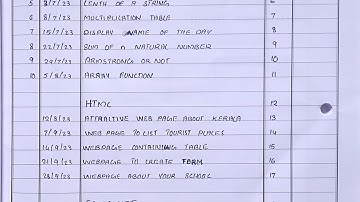 5 8/7/23 LENTH OF A STRING 6
6 8/7/23 MULTIPLICATION TABLE 7
7 15/7/23 DISPLAY NAME OF THE DAY 8
8 22/7/23 SUM OF n NATURAL NUMBER 9
9 29/7/23 ARMSTRONG OR NOT 10
10 5/8/23 ARRAY FUNCTION 11
HTML 12
12/8/23 ATTRACTIVE WEB PAGE ABOUT KERALA 13
7/9/23 WEB PAGE TO LIST TOURIST PLACES 14
14/9/23 WEBPAGE CONTAINING TABLE 15
21/9/23 WEBPAGE TO CREATE FORM 16
28/9/23 WEBPAGE ABOUT YOUR SCHOOL 17